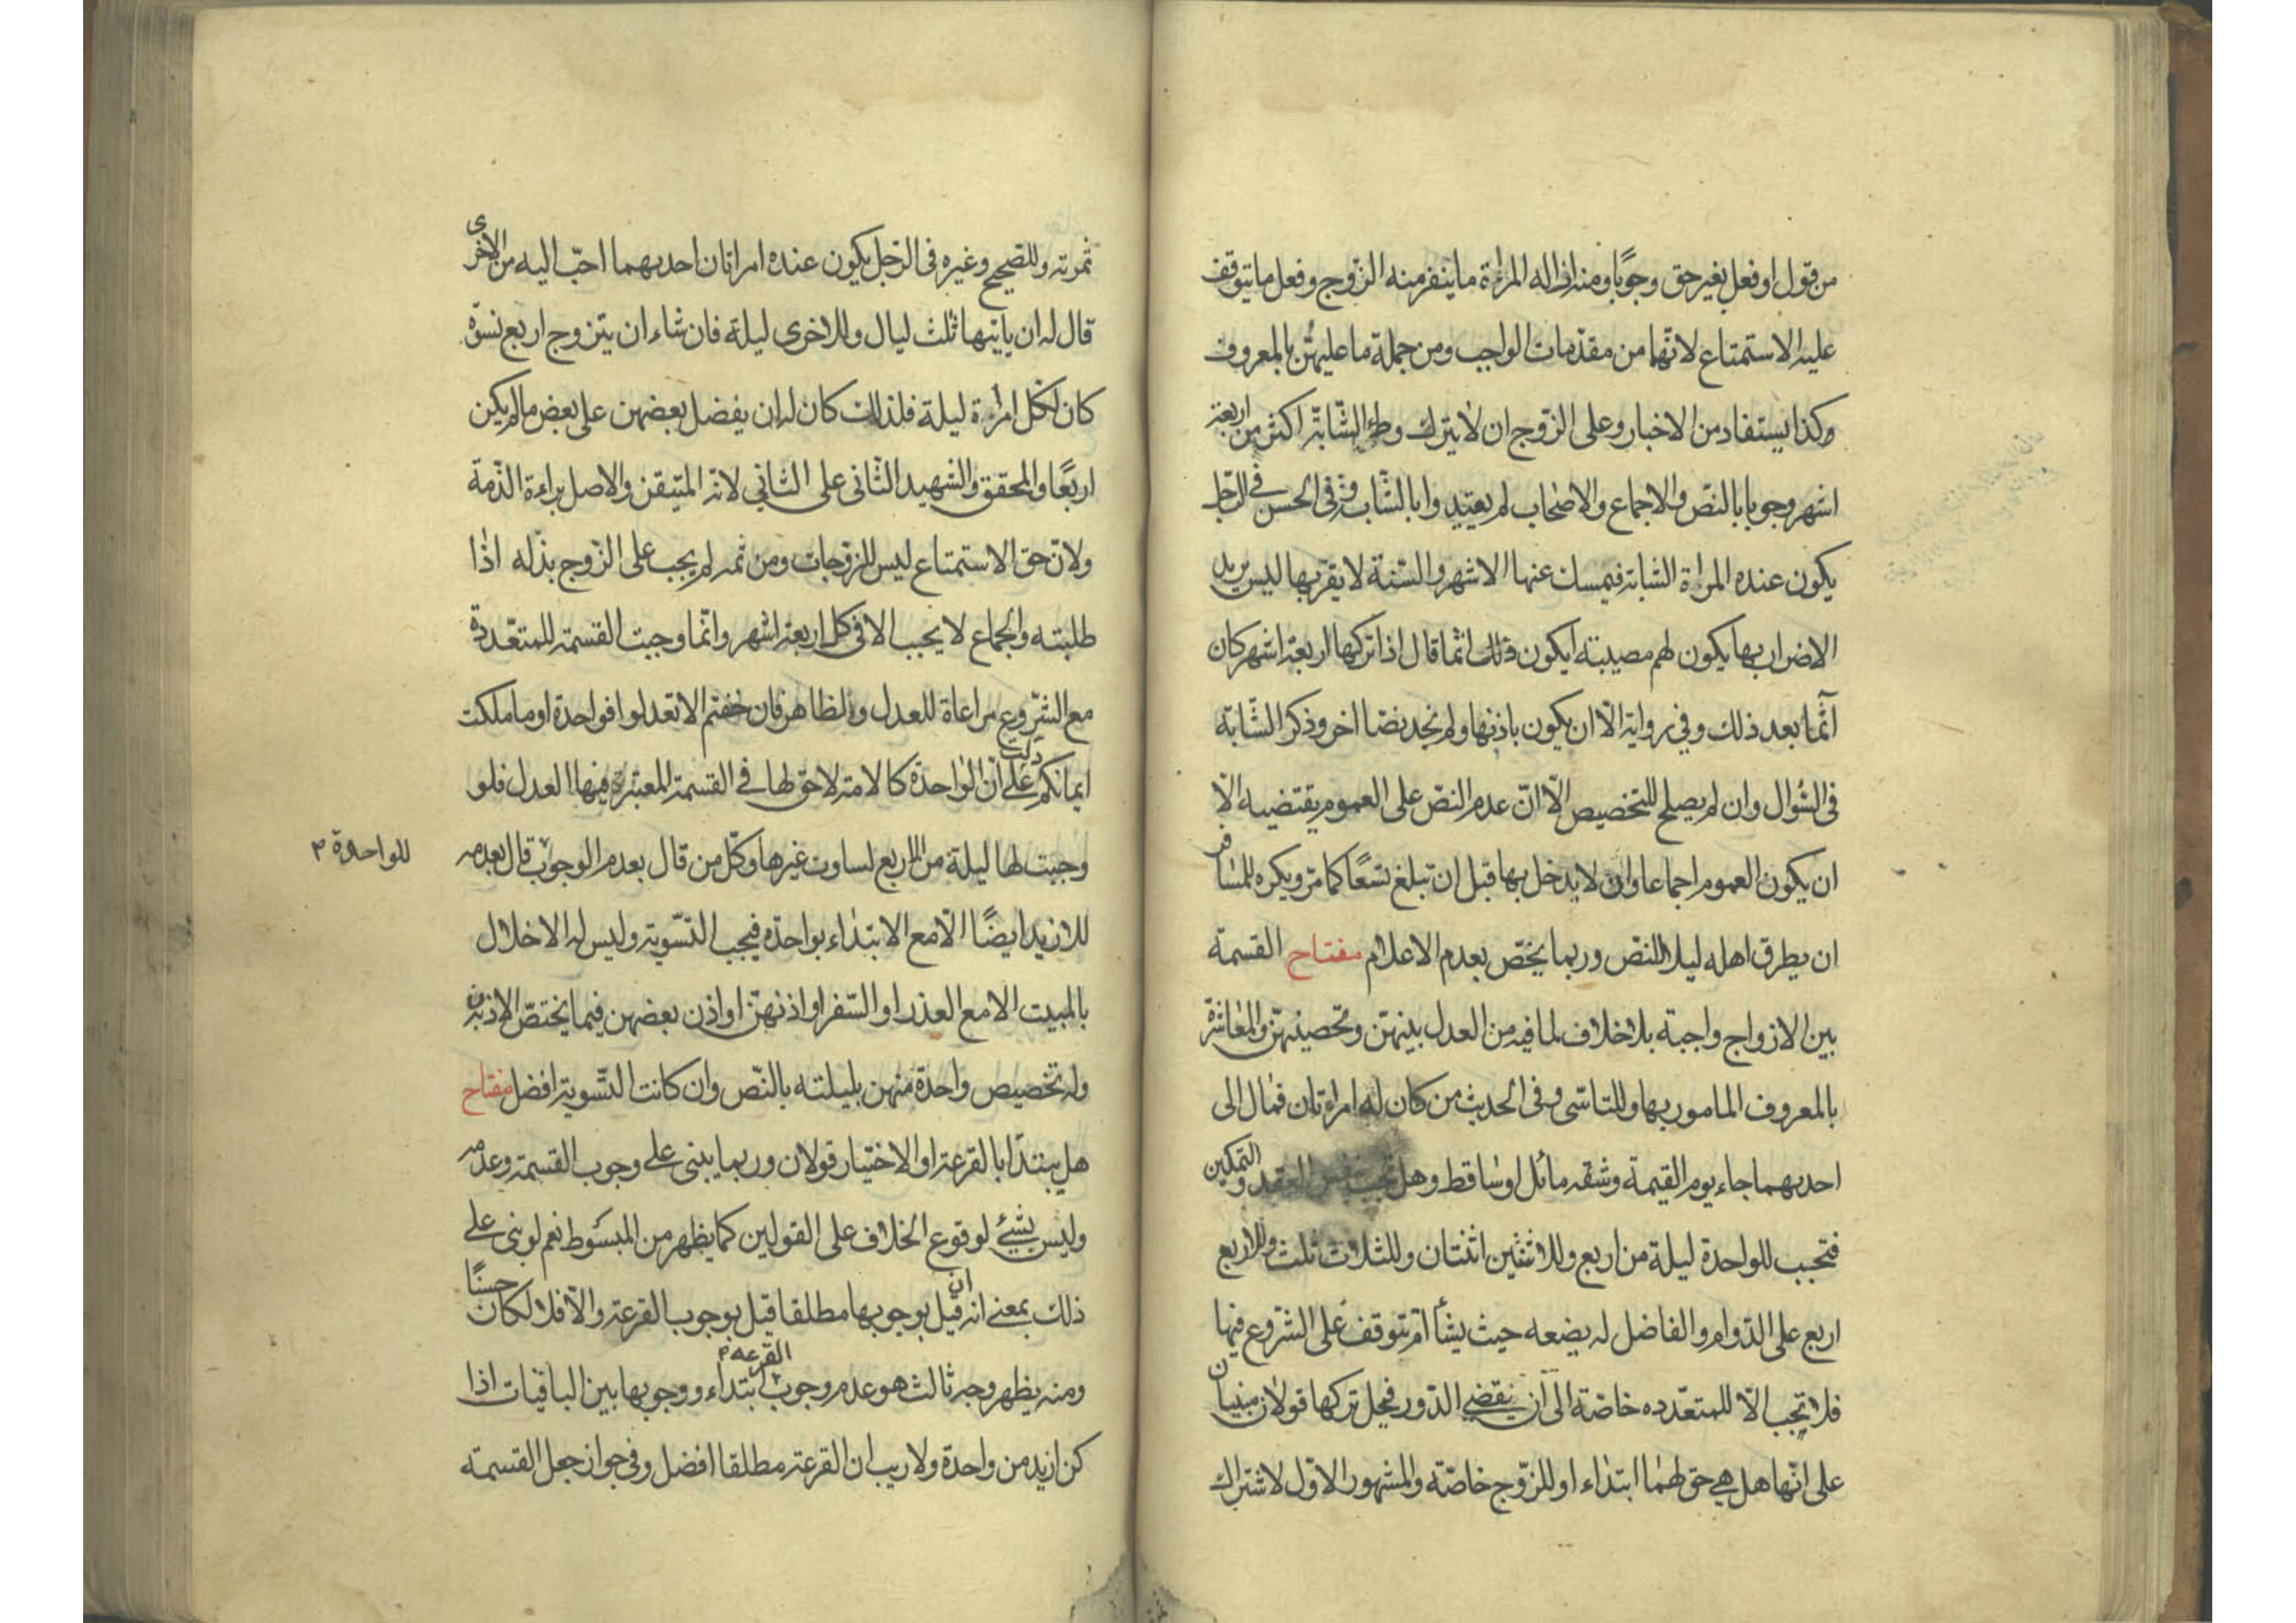 من قول او فعل بغير حق وجوبًا ومنه ازاله المراة ما ينفر منه الزوج وفعل ما يتوقف
عليه الاستمتاع لانّها من مقدّمات الواجب ومن جملة ما عليهنّ بالمعروف
وكذا يستفاد من الاخبار وعلى الزّوج ان لا يترك وطئ الشّابّة اكثر من اربعة
اشهر وجوبا بالنصّ والاجماع والاصحاب لم يقيّدوا بالشّابة وفى الحسن في الرّجل
يكون عنده المراة الشابة فيمسك عنها الاشهر والسّنة لا يقربها ليس يريد
الاضرار بها يكون لهم مصيبة ايكون ذلك اثما قال اذا تركها اربعة اشهر كان
آثما بعد ذلك وفي رواية الّا ان يكون باذنها ولم نجد نصّا اخر وذكر الشّابة
فى السّؤال وان لم يصلح للتخصيص الّا انّ عدم النصّ على العموم يقتضيه الّا
ان يكون العموم اجماعا وان لا يدخل بها قبل ان تبلغ تسعًا كما مرّ ويكره للمسافر
ان يطرق اهله ليلا للنصّ وربما يخصّ بعدم الاعلام مفتاح القسمة
بين الازواج واجبة بلا خلاف لما فيه من العدل بينهنّ وتحصينهنّ والمعاشرة
بالمعروف المامور بها وللتاسّى وفى الحديث من كان له امراتان فمال الى
احديهما جاء يوم القيمة وشقّه مائل او ساقط وهل تجب بنفس العقد والتمكين
فتجب للواحدة ليلة من اربع وللاثنتين اثنتان وللثلاث ثلث وللاربع
اربع على الدّوام والفاضل له يضعه حيث يشأ ام تتوقف على الشروع فيها
فلا تجب الّا للمتعدّده خاصّة الى ان ينقضي الدّور فيحل تركها قولان مبنيان
على انّها هل هي حق لهما ابتداء او للزّوج خاصّة والمشهور الاوّل لاشتراك
ثمرته وللصّحيح وغيره فى الرّجل يكون عنده امراتان احديهما احبّ اليه من الاخرى
قال له ان ياتيها ثلث ليال وللاخرى ليلة فان شاء ان يتزوج اربع نسوة
كان لكل امراة ليلة فلذلك كان له ان يفضل بعضهن على بعض ما لم يكن
اربعًا والمحقق والشهيد الثّانى على الثاني لانّه المتيقن والاصل براءة الذّمة
ولانّ حق الاستمتاع ليس للزوجات ومن ثمه لم يجب على الزّوج بذله اذا
طلبته والجماع لا يجب الا فى كل اربعة اشهر وانّما وجبت القسمة للمتعدّدة
مع الشّروع مراعاة للعدل ولظاهر فان خفتم الا تعدلوا فواحدة او ما ملكت
ايمانكم دلت على انّ الواحدة كالامة لا حق لها في القسمة المعتبرة فيها العدل فلو
وجبت لها ليلة من الاربع لساوت غيرها وكلّ من قال بعدم الوجوب قال بعدمه
للواحدة
للازيد ايضًا الّا مع الابتداء بواحدة فيجب التّسوية وليس له الاخلال
بالمبيت الا مع العذر او السّفر او اذنهنّ او اذن بعضهن فيما يختصّ الاذن به
وله تخصيص واحدة منهن بليلته بالنّص وان كانت التّسوية افضل مفتاح
هل يبتدأ بالقرعة او الاختيار قولان وربما يبنى على وجوب القسمة وعدمه
وليس بشيئ لوقوع الخلاف على القولين كما يظهر من المبسوط نعم لو بنى على
ذلك بمعنى انه ان قيل بوجوبها مطلقا قيل بوجوب القرعة والّا فلا لكان حسنًا
ومنه يظهر وجه ثالث هو عدم وجوب القرعه ابتداء ووجوبها بين الباقيات اذا
كن ازيد من واحدة ولا ريب ان القرعة مطلقا افضل وفى جواز جعل القسمة